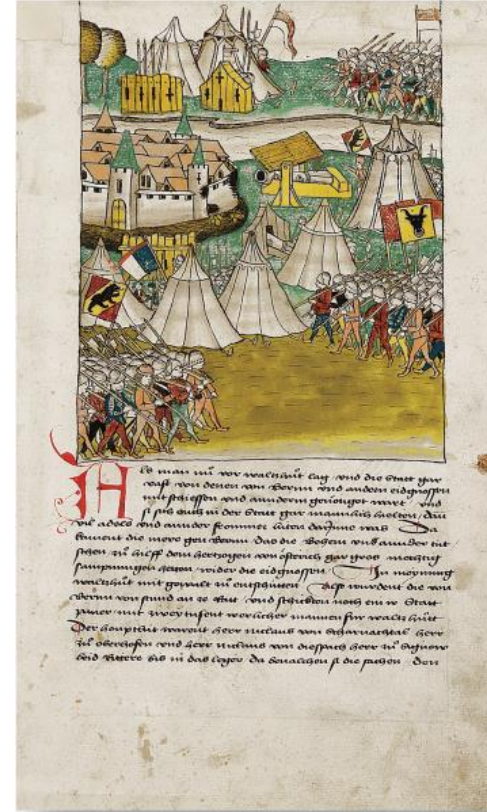 Als man nu vor waltzhut lag und die statt gar
vast von denen von Bernn und andern eidgnossen
mit schiessen und anndern genotiget wart und
si sich ouch in der statt gar mannlich hielten dan
vil adels und annder frommer luten darinne was Da
kament die mere gen Bernn das die Behem und annder tut
schen zu hilff dem hertzogen von Osterich gar gros mechtig
samnungen hetten wider die eidgnossen In meynung
waltzhut mit gewalt zu entschutten Also wurdent die von
Bernn von stund an ze Rat und schickten noch ein ir Statt
paner mit zwey tusent werlicher mannen fur waltzhut
Der houptlut warent herr niclaus von Scharnachtal herr
zu oberhofen und herr niclaus von diespach herr zu Signow
beid Rittere bis in das leger da bevalchen si die sachen den